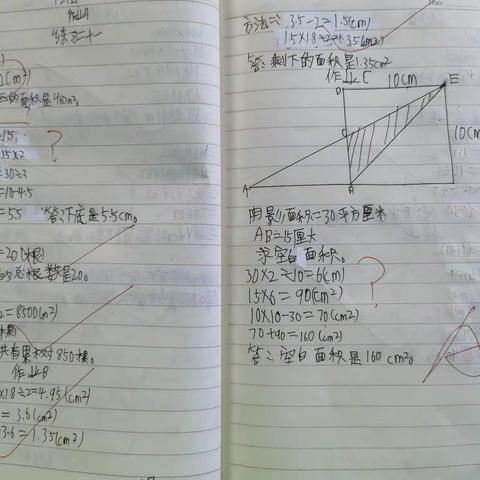 作业A
练习二十
(m²)
的面积是40m²。
=15,
15×2
=30÷3
=10-4.5
=5.5 答:下底是5.5cm。
=20(根)
的总根数是20。
=8500(m²)
共有果树850棵。
作业B
×1.8÷2=4.95(cm²)
=3.6(cm²)
-3.6=1.35(cm²)
方法二:3.5-2=1.5(cm)
1.5×1.8÷2=1.35(cm²)
答:剩下的面积是1.35cm²
作业C
D 10cm E
C 10cm
A B
阴影面积=30平方厘米
AB=15厘大
求空白面积。
30×2÷10=6(cm)
15×6=90(cm²)
10×10-30=70(cm²)
70+90=160(cm²)
答:空白面积是160cm²。